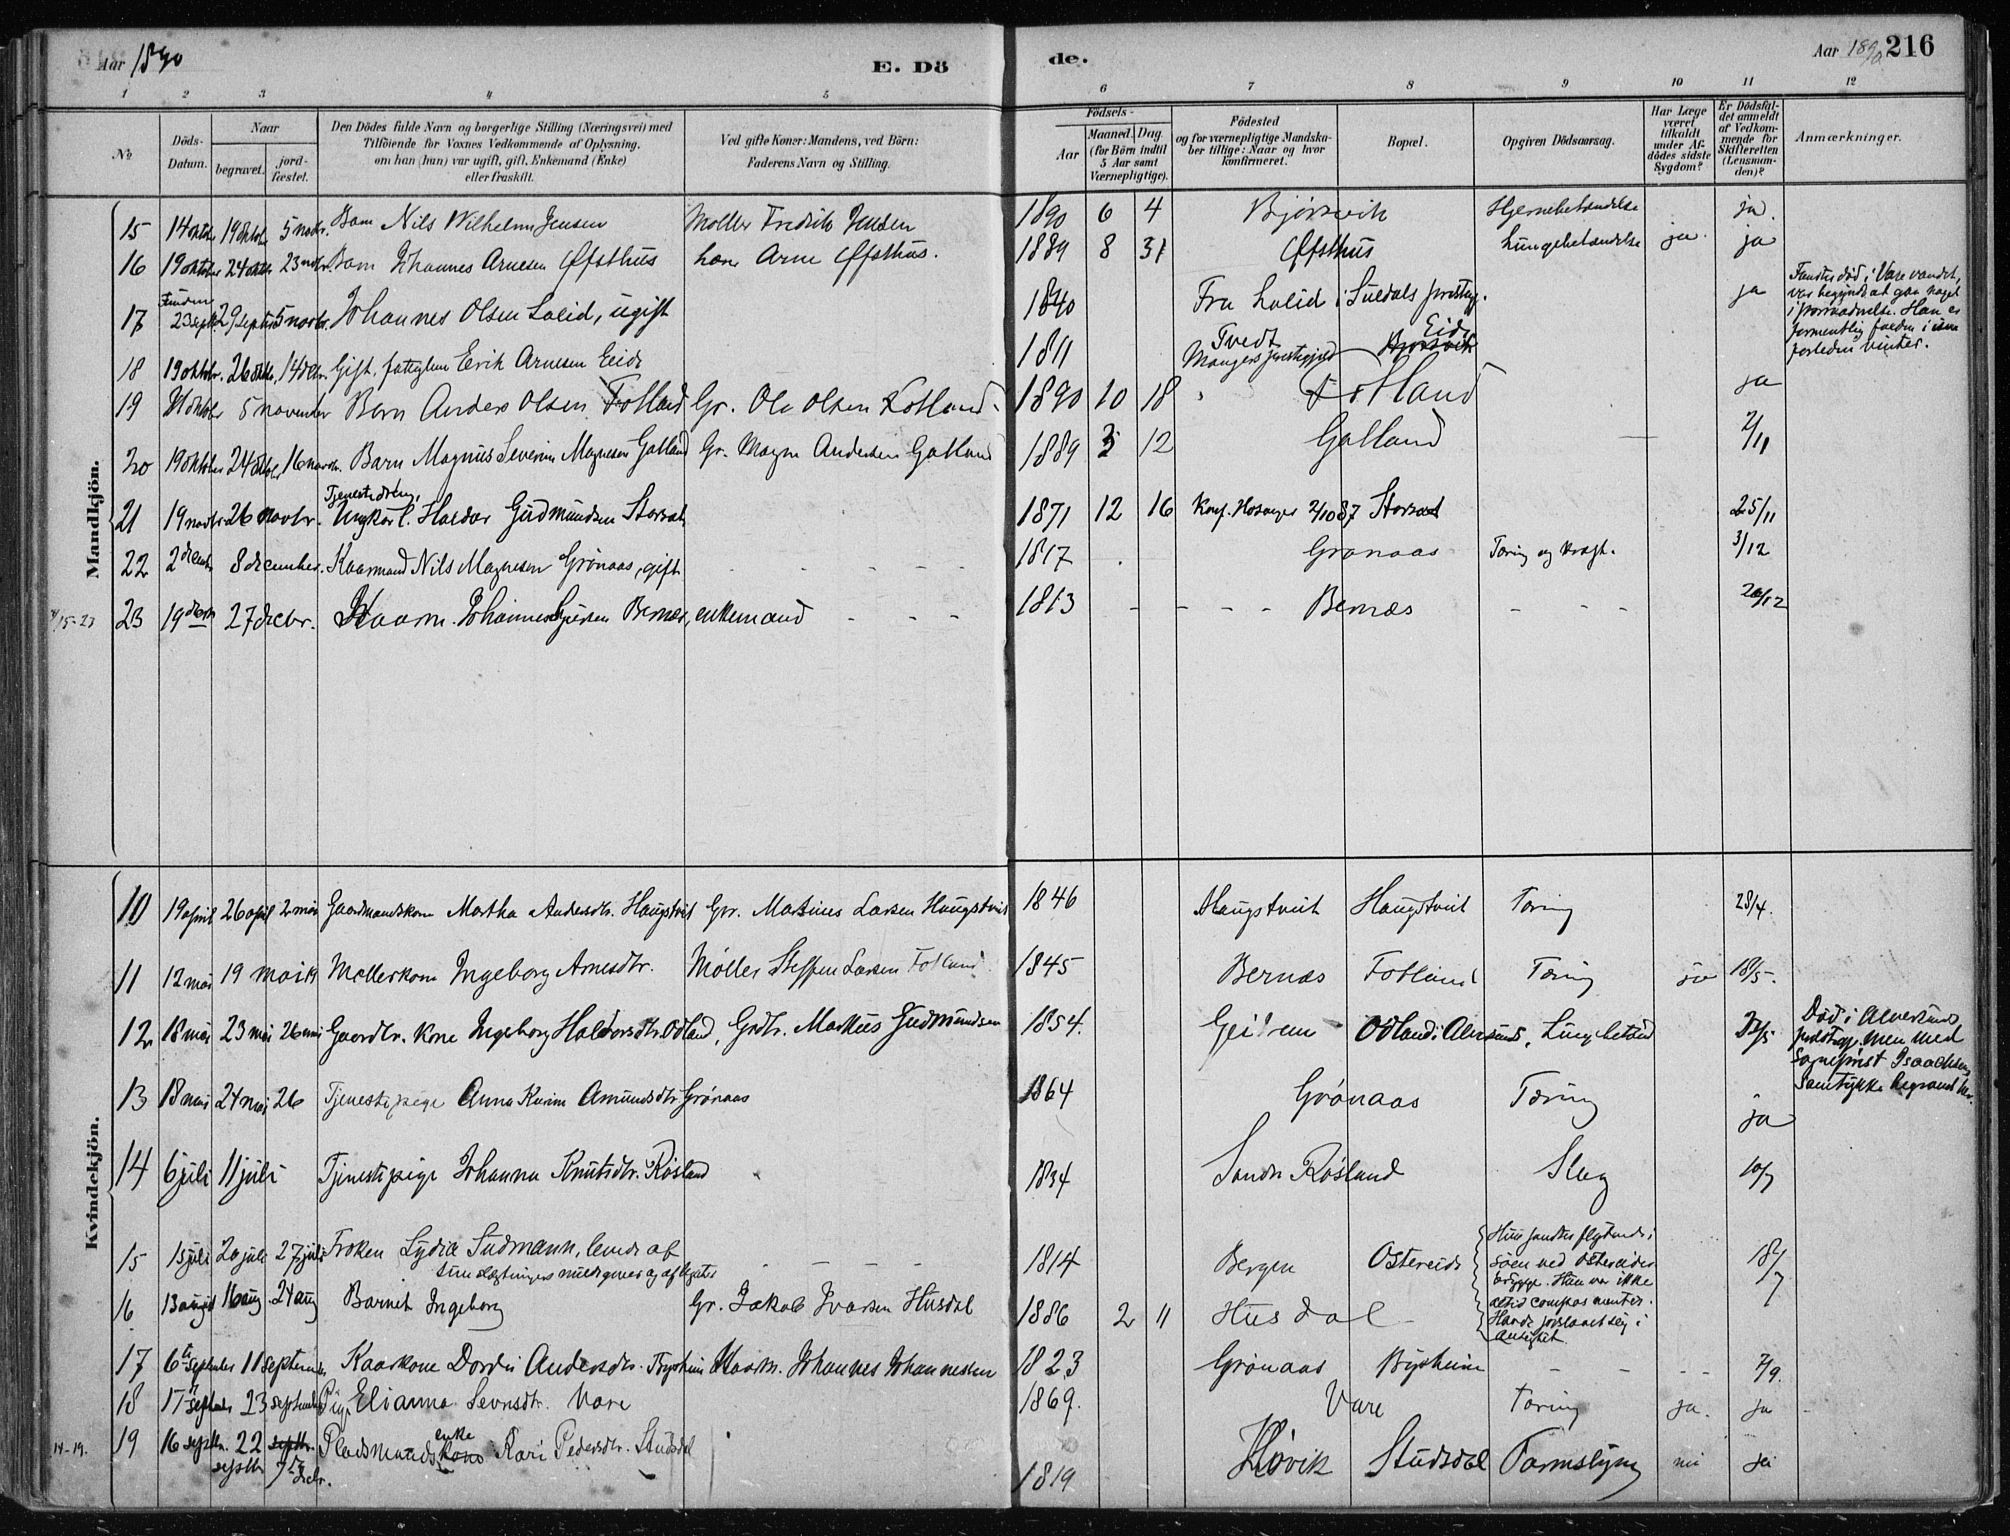 Aar 1890
E. Dö
de.
Aar 1890. 216
1 2 3 4 5 6 7 8 9 10 11 12
No
Döds-Datum.
Naar
begravet.
jord-fæstet.
Den Dödes fulde Navn og borgerlige Stilling (Næringsvei) med
Tilföiende for Voxnes Vedkommende af Oplysning.
om han (hun) var ugift, gift. Enkemand (Enke)
eller fraskilt.
Ved gifte Koner: Mandens, ved Börn:
Faderens Navn og Stilling.
Födsels-
Aar
Maaned. Dag
(for Börn indtil
5 Aar samt
Værnepligtige).
Födested
og for værnepligtige Mandska-
ber tillige: Naar og hvor
konfirmeret.
Bopæl.
Opgiven Dödsaarsag.
Har Læge
været
tilkaldt
under Af-
dödes sidste
Sygdom?
Er Dödsfal-
det anmeldt
af Vedkom-
mende for
Skifteretten
(Lensman-
den)?
Anmærkninger.
Mandkjön.
15 14 oktbr 19 oktob. 5 novbr. Barn Nils Wilhelm Jensen Møller Fredrik Jensen 1890 6 4 Bjørsvik Hjernebetændelse ja.
16 19 oktober 24 oktb. 23 novbr. Barn Johannes Arnesen Øfsthus Arne Øfsthus. 1889 8 31 Øfsthus Lungebetændelse ja. ja
17 Funden 23 septb. 29 septbr 5 novbr. Johannes Olsen Lalid, ugift 1840 Fra Lalid i Suldals prstgj. ja
Fandtes død i Vare vandet,
var begyndt at gaa noget
i forraadnelse. Han er
formentlig falden i isen
forleden vinter.
18 19 oktobr. 26 oktb. 14 decbr. Gift. fattiglem Erik Arnesen Eide 1811 Tvedt Mangers prestegjeld Eide
19 31 oktober 5 november Barn Anders Olsen Fotland Gr. Ole Olsen Fotland 1890 10 18 Fotland ja
20 19 oktober 24 oktob. 16 novbr. Barn Magnus Severin Magnesen Gatland Gr. Magne Andersen Gatland 1889 3 12 Gatland 2/11
21 19 novbr 26 novbr. Tjenestedreng, Ungkarl. Haldor Gudmundsen Storsæt 1871 12 16 Konf. Hosanger 2/10 87 Storsæt 25/11
22 2 decmb. 8 december. Kaarmand Nils Magnesen Grønaas, gift 1817 Grønaas Tæring og kræft. 3/12
4/15-23 23 19 decbr 27 decbr. Kaarm. Johannes Bernæs, enkemand 1813 Bernæs 20/12
Kvindekjön.
10 19 april 26 april 2 mai Gaardmandskone Martha Andersdtr. Haugstveit Gr. Martinus Larsen Haugstveit 1846 Haugstveit Haugstveit Tæring 28/4.
11 12 mai 19 mai 19 Møllerkone Ingeborg Arnesdtr. Møller Steffen Larsen Fotland 1845 Bernæs Fotland Tæring ja 18/5.
12 18 mai 23 mai 26 mai Gaardbr. kone Ingeborg Haldorsdtr. Odland, Grdbr. Markus Gudmundsen 1854. Geitrem Odland i Alversund, Lungebetænd 22/5
Død i Alversunds
prstegj. men med
Sognepræst Isaachsens
samtykke begravet her.
13 18 mai 24 mai 26 Tjenestepige Anna Karin Amundsdtr Grønaas 1864 Grønaas Tæring ja
14 6 juli 11 juli Tjenestepige Johanna Knutsdtr. Røsland 1834 Søndre Røsland Slag 10/7
15 15 juli 20 juli 27 juli Frøken Lydia Sudmann, levede af
sine slægtninges understøttelse og af legater 1814 Bergen Ostereide 18/7
Hun fandtes flydende i
søen ved Ostereidet
brygge. Hun var ikke
altid compos mentis.
Havde forslaaet sig i
ansigtet.
16 13 august 16 aug 24 aug Barnet Ingeborg Gr. Jakob Ivarsen Husdal 1886 2 11 Husdal
17 6 septembr 11 september Kaarkone Dordei Andersdtr. Bysheim Kaarm. Johannes Johannesen 1823 Grønaas Bysheim 7/9.
18 17 septembr 23 septembr Pige Elianna Sevrinsdtr. Vare 1869. Vare Tæring ja. ja
14-19. 19 16 septbr. 22 septbr 7 decbr. Pladsmandsenke Kari Pedersdtr. Studsdal 1819 Høvik Studsdal Tarmslyng nei ja